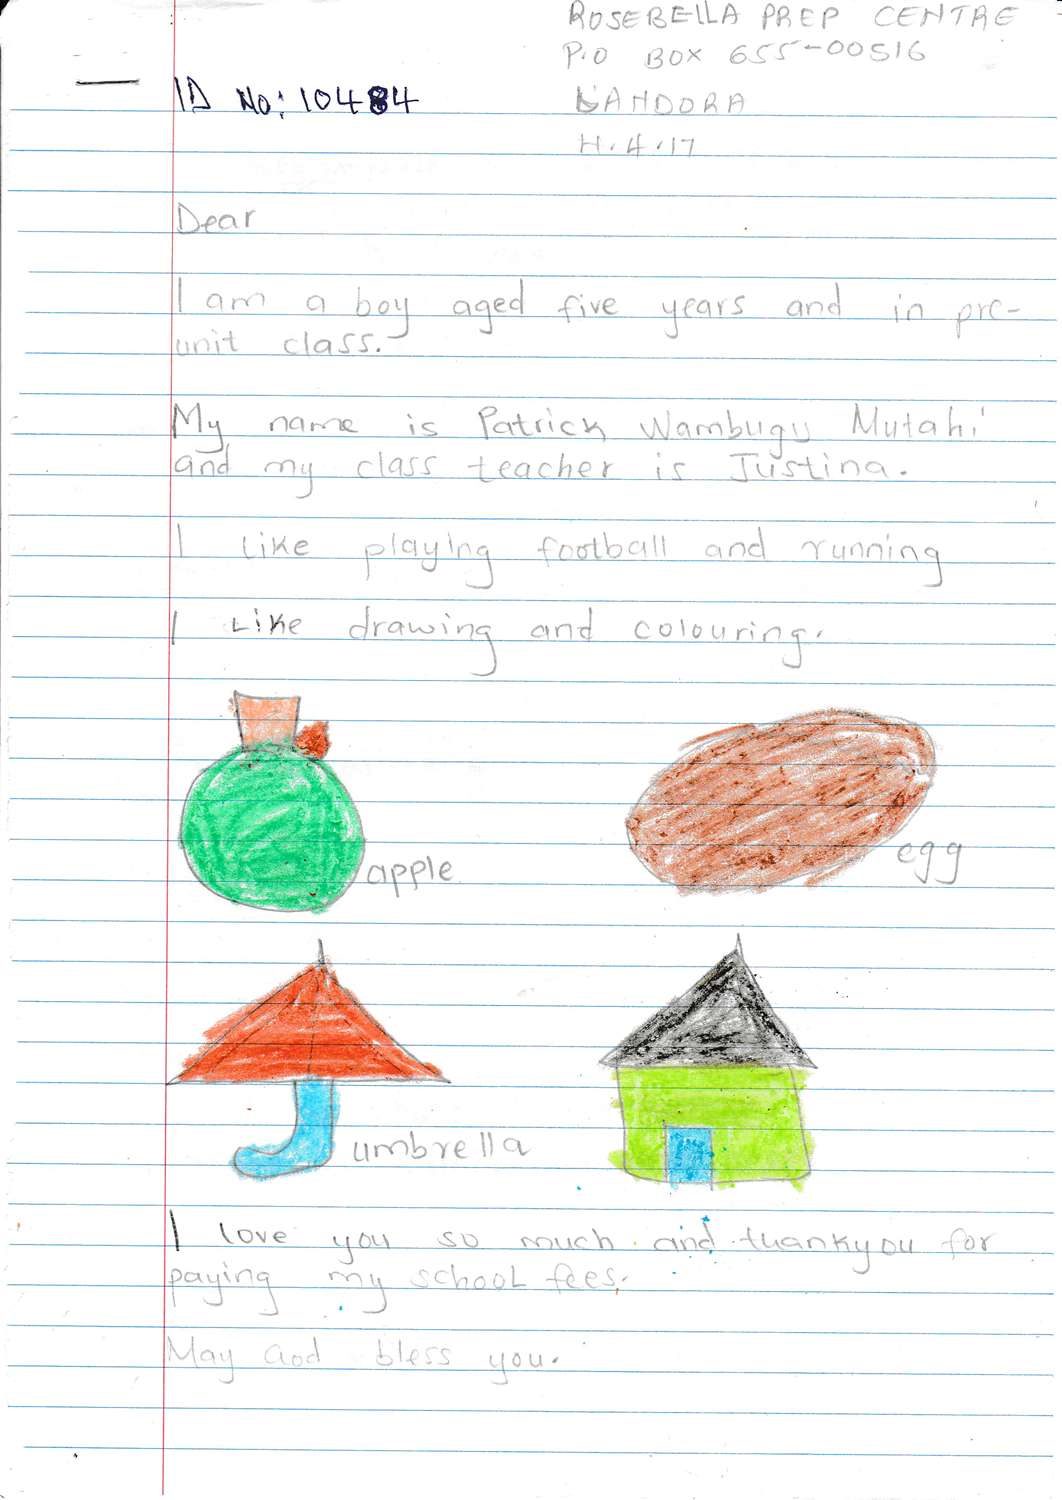 ROSEBELLA PREP CENTRE
P.O BOX 655-00516
ID No: 10484
DANDORA
H.4.17
Dear
I am a boy aged five years and in pre-
unit class.
My name is Patrick Wambugu Mutahi
and my class teacher is Justina.
I Like playing football and running
I Like drawing and colouring.
apple
egg
umbrella
I love you so much and thankyou for
paying my school fees.
May God bless you.